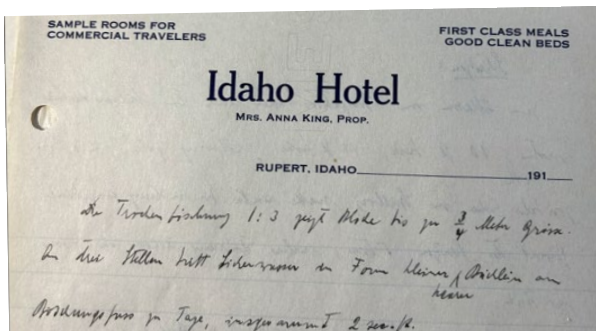 SAMPLE ROOMS FOR
COMMERCIAL TRAVELERS
FIRST CLASS MEALS
GOOD CLEAN BEDS
Idaho Hotel
MRS. ANNA KING, PROP.
RUPERT, IDAHO 191
Die Trockenböschung 1:3 zeigt Blöcke bis zu 3/4 Meter Grösse.
An drei Stellen tritt Sickerwasser in Form kleiner klarer Bächlein am
Böschungsfuss zu Tage, insgesammt 2 sec. ft.